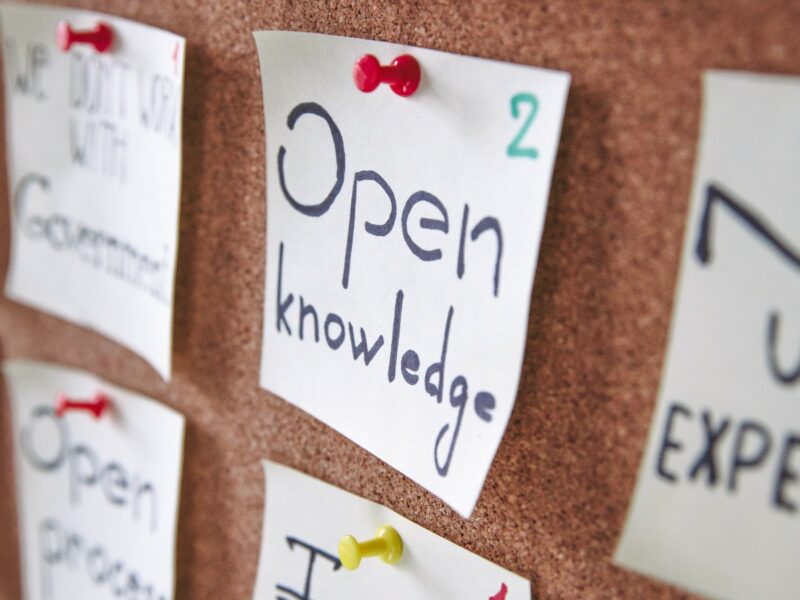 1
We DON'T WORK
WITH
Government
2
Open
knowledge
EXPE
Open
process
I